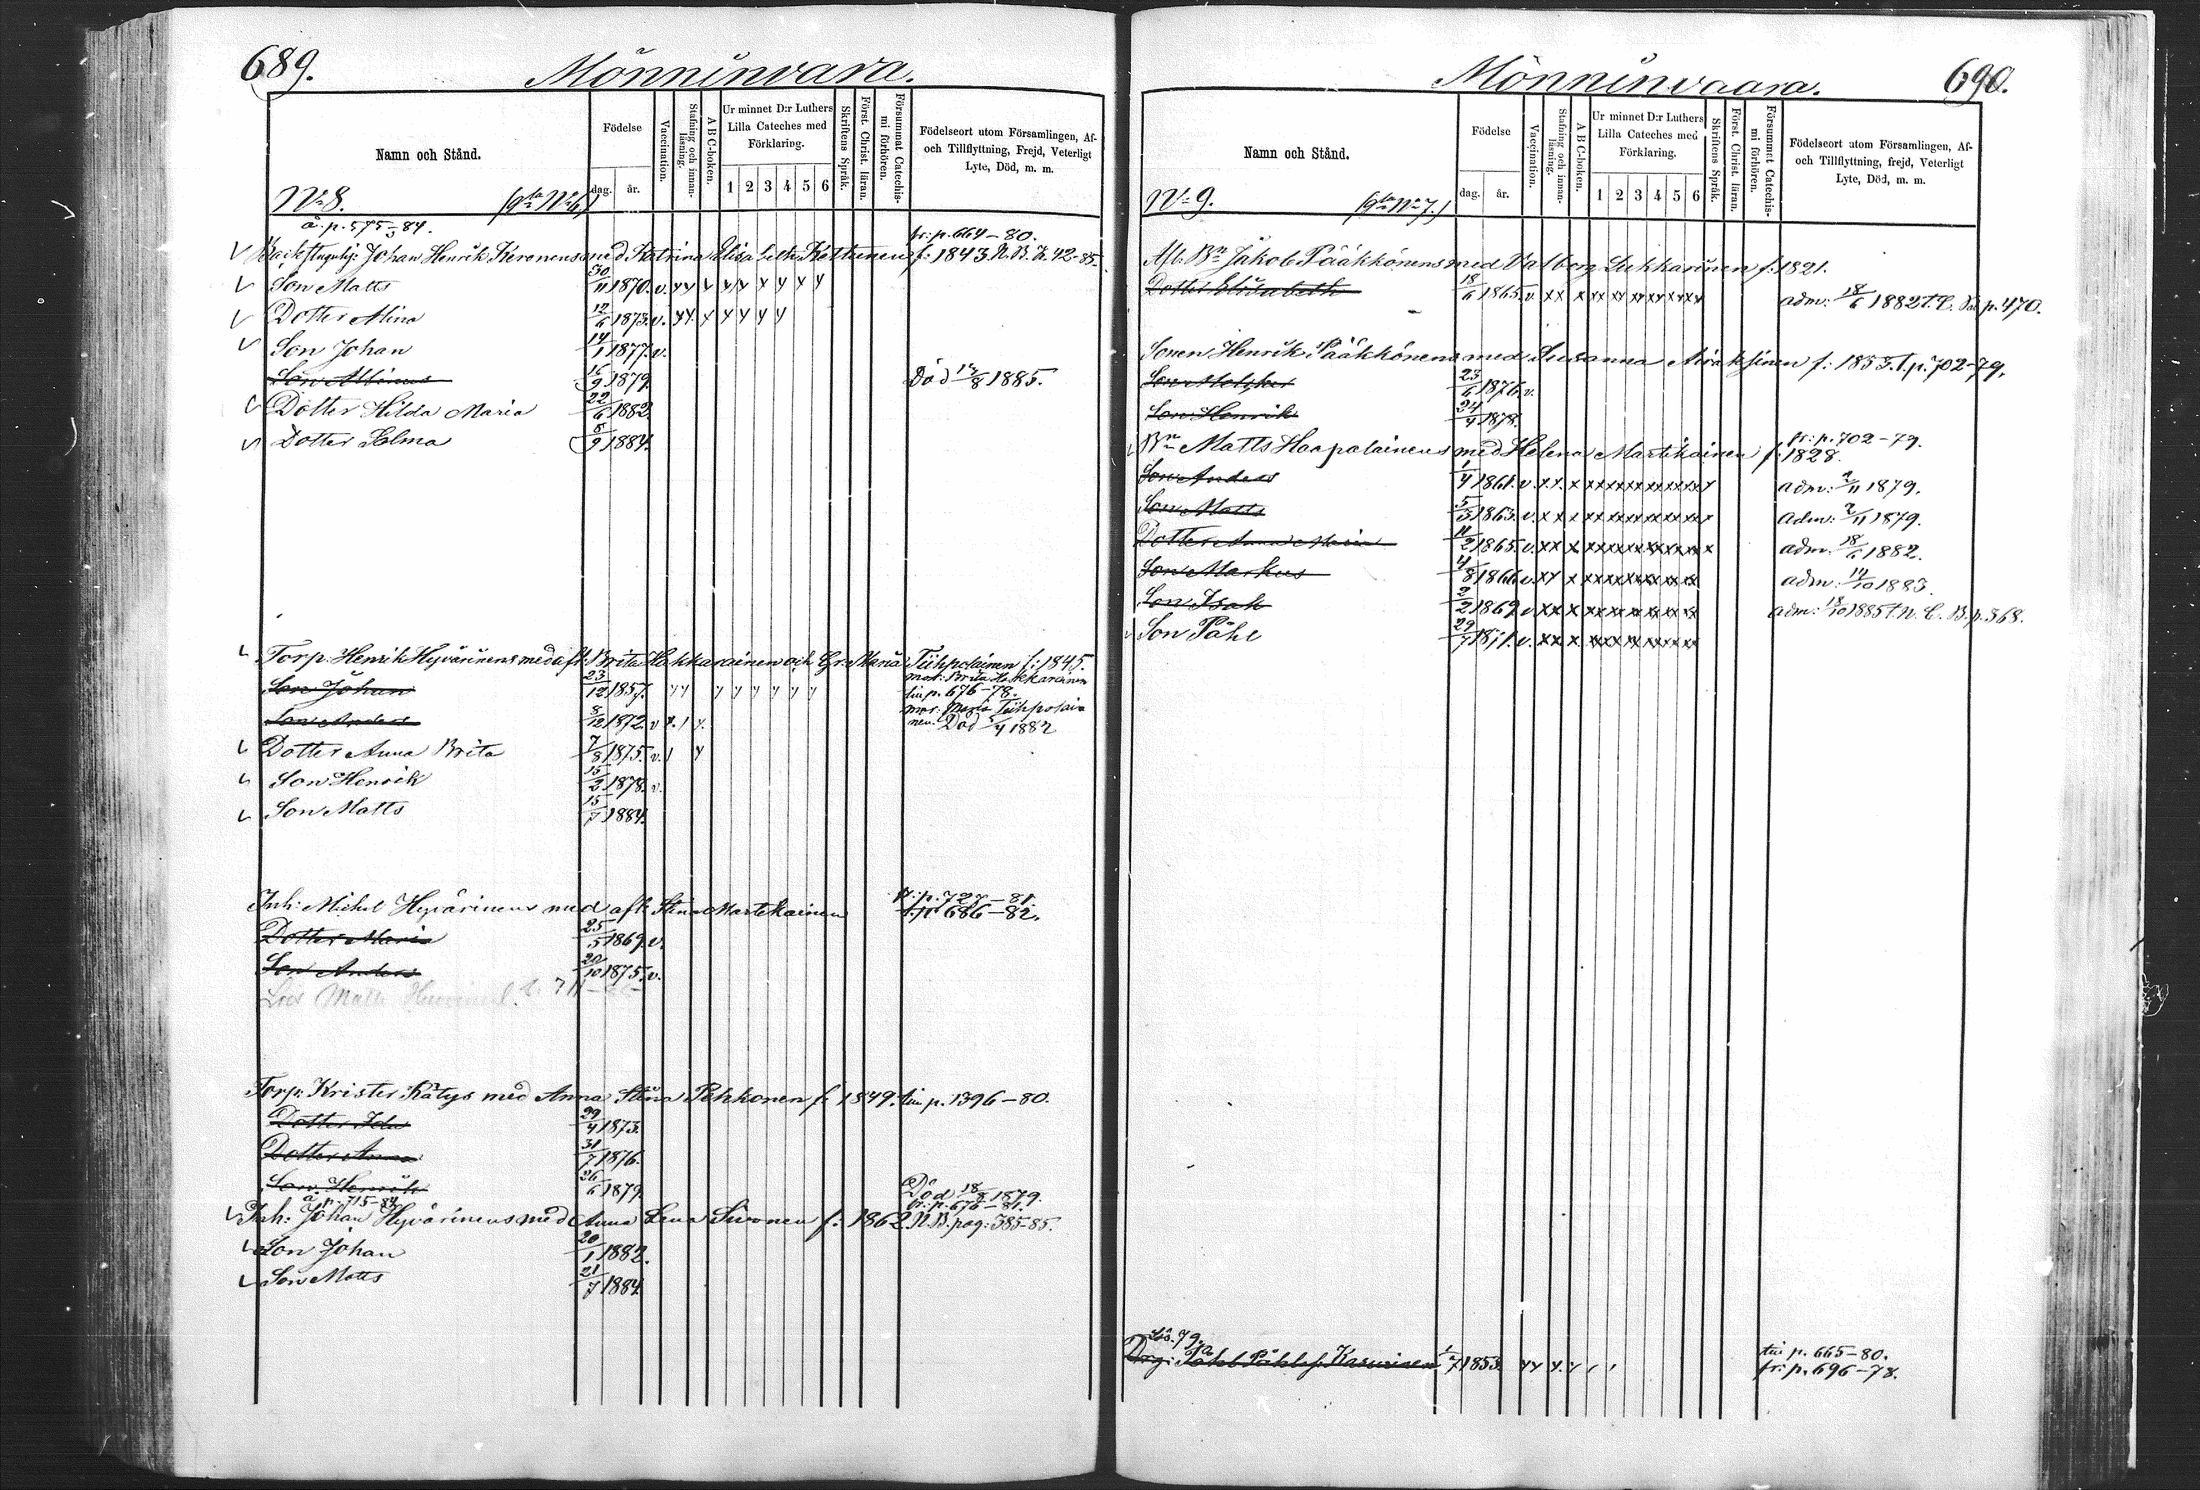 689.
Mönninvara.
Namn och Stånd.
Födelse
dag. år.
Vaccination.
Stafning och innanläsning.
A B C-boken.
Ur minnet D:r Luthers Lilla Cateches med Förklaring.
1 2 3 4 5 6
Skriftens Språk.
Först. Christ. läran.
Försummat Catechismi förhören.
Födelseort utom Församlingen, Af- och Tillflyttning, Frejd, Veterligt Lyte, Död, m. m.
No 8. (gla No 6)
å p. 575-84. fr: p. 664-80.
Johan Henrik Keronens med Katrina Elisa Kettunen f: 1843. N. B. K. 42-85.
Son Matts 30/11 1870. v.
Dotter Mina 12/6 1873. v.
Son Johan 14/1 1877. v.
Son 16/9 1879. Död 1885.
Dotter Hilda Maria 22/6 1882.
Dotter Selma 8/9 1884.
Torp. Henrik Hyvärinens med afl. Brita Hakkarainen och Gr: Maria Tiihpolainen f: 1845.
Son Johan 23/12 1857. mor: Brita Hakkarainen
tin p. 676-78.
Son Anders 8/12 1872. v mor: Maria Tiihpolainen. Död 5/4 1882
Dotter Anna Brita 7/8 1875. v.
Son Henrik 15/2 1878. v.
Son Matts 15/7 1884.
fr: p. 727-81.
Inh: Michel Hyvärinens med afl: Stina Martikainen t. p. 686-82.
Dotter Maria 25/5 1869. v.
Son Anders 20/10 1875. v.
Torp: Krister Rätys med Anna Stina Pekkonen f. 1849. tin p. 1396-80.
Dotter Ida 29/4 1873.
Dotter Anna 31/7 1876.
Son Henrik 26/6 1879. Död 18/8 1879.
å p. 715-84 fr: p. 676-81.
Inh: Johan Hyvärinens med Anna Lena Sivonen f: 1862 N. B. pag: 385-85.
Son Johan 20/1 1882.
Son Matts 21/7 1884
Mönninvaara. 690.
Namn och Stånd.
Födelse
dag. år.
Vaccination.
Stafning och innanläsning.
A B C-boken.
Ur minnet D:r Luthers Lilla Cateches med Förklaring.
1 2 3 4 5 6
Skriftens Språk.
Först. Christ. läran.
Försummat Catechismi förhören.
Födelseort utom Församlingen, Af- och Tillflyttning, frejd, Veterligt Lyte, Död, m. m.
No 9. (gla No 7.)
Afl. Bn Jakob Pääkkönens med Valborg Sukkarinen f: 1821.
Dotter Elisabeth 18/6 1865. v. adm: 18/6 1882 t. p. 470.
Sonen Henrik Pääkkönens med Susanna f: 1853. t. p. 702-79.
Son 23/6 1876. v.
Son Henrik 24/4 1878.
fr: p. 702-79.
Bn Matts Haapalainens med Helena Martikainen f. 1828.
Son Anders 1/4 1861. v. adm: 2/11 1879.
Son Matts 5/3 1863. v. adm: 2/11 1879.
Dotter Anna Maria 11/2 1865. v. adm. 18/6 1882.
Son Markus 4/8 1866 v. adm. 14/10 1883.
Son Isak 2/2 1869 v adm: 18/10 1885 t. N. C. B. p. 368.
Son Påhl 29/7 1871. v.
Lös. 79.
Drg: Påhlsf. Karvinen 1/7 1853. tin p. 665-80.
fr: p. 696-78.